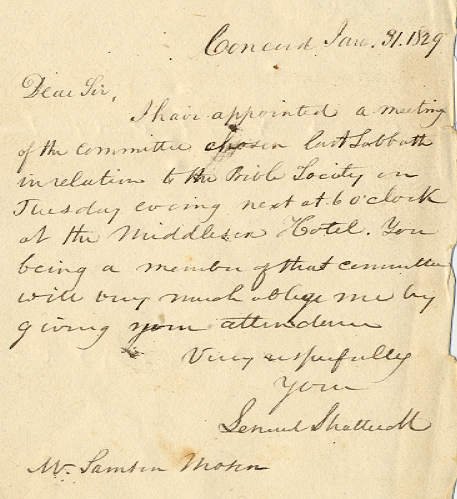 Concord Jan. 31. 1829
Dear Sir,
I have appointed a meeting
of the committee chosen last Sabbath
in relation to the Bible Society on
Tuesday evening next at 6 o'clock
at the Middlesex Hotel. You
being a member of that committee
will very much oblige me by
giving your attendance
Very respectfully
Yours
Lemuel Shattuck
Mr. Samson Mason